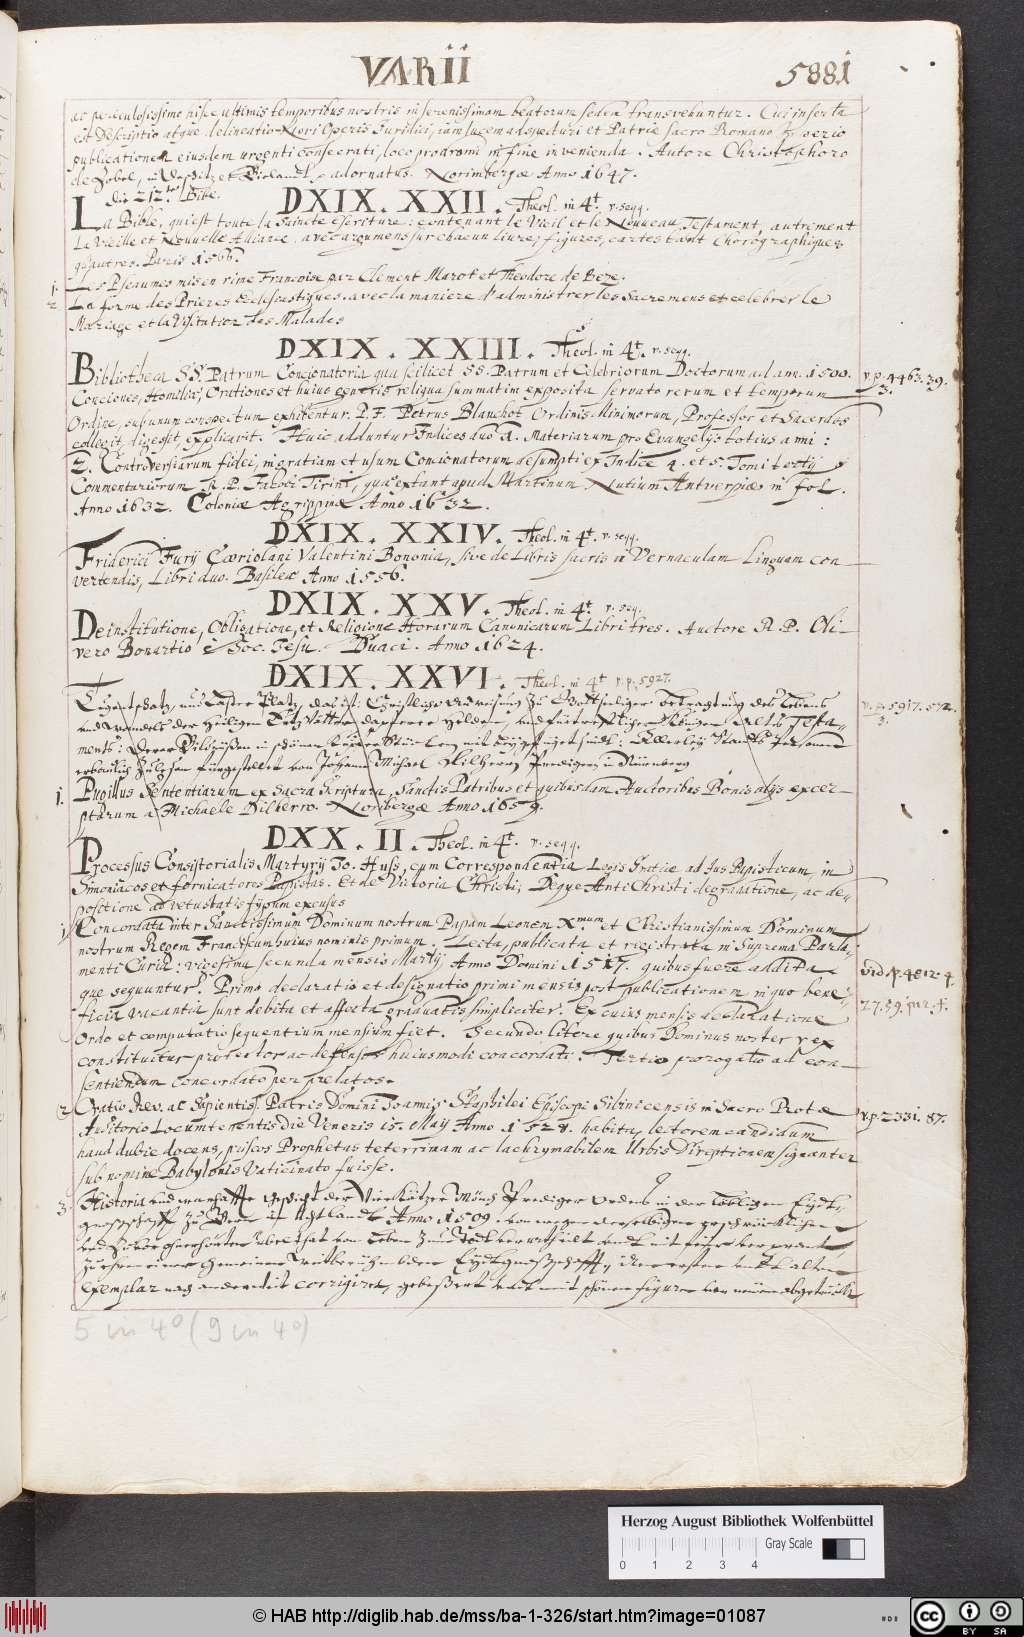 VARII
5881
ac periculosissimo hisce ultimis temporibus nostris in serenissimam beatorum sedem transvehuntur. Cui inserta
est Descriptio atque delineatio Novi Operis Juridici, iam lucem adspecturi et Patriæ sacro Romano
publicationem eiusdem urgenti consecrati, loco prodromi in fine invenienda. Autore Christophoro
de Zobel, adornatus. Norimbergæ Anno 1647.
Bibl.
DXIX. XXII. Theol. in 4t. v. seqq.
La Bible, qui est toute la Saincte escriture: contenant le Vieil et le Nouueau Testament, autrement
La Vieille et Nouuelle Alliance. avec argumens sur chacun liure, figures, cartes tant Chorographiques
qu'autres. Paris 1566.
1. Les Pseaumes mis en rime Francoise par Clement Marot et Theodore de Beze.
2. La forme des Prieres Ecclesiastiques. avec la maniere d'administrer les Sacremens et celebrer le
Mariage et la Visitation des Malades
DXIX. XXIII. Theol. in 4t. v. seqq.
Bibliotheca SS. Patrum Concionatoria qua scilicet SS. Patrum et Celebriorum Doctorum ad ann. 1500. v. p. 4463. 39.
Conciones, Homiliæ, Orationes et huius generis reliqua summatim exposita servato rerum et temporum 3.
Ordine, sub unum conspectum exhibentur. P. F. Petrus Blanchot Ordinis Minimorum, Professor et Sacerdos
collegit, digessit, explicavit. Huic adduntur Indices duo 1. Materiarum pro Evangelys totius anni:
2. Controversiarum fidei, in gratiam et usum Concionatorum desumpti ex Indice 4. et 5. Tomi tertij
Commentariorum R. P. Jacobi Tirini, qua extant apud Martinum Nutium Antverpiæ in fol.
Anno 1632. Coloniæ Agrippinæ Anno 1632.
DXIX. XXIV. Theol. in 4t. v. seqq.
Friderici Furij Cæriolani Valentini Bononia, sive de Libris sacris in Vernaculam Linguam con-
vertendis, Libri duo. Basileæ Anno 1556.
DXIX. XXV. Theol. in 4t. v. seq.
De institutione, Obligatione, et Religione Horarum Canonicarum Libri tres. Auctore R. P. Oli-
vero Bonartio è Soc. Jesu. Duaci. Anno 1624.
DXIX. XXVI. Theol. in 4t v. p. 5927.
Tugendschatz, und Laster Platz, das ist: Christliche Anweisung zu Gottseeliger betrachtung des Lebens v. p. 5917. 572.
und Wandels der Heiligen Ertz Vätter dapferer Helden, und fürtrefflicher Altes Testa- 3.
ments: Derer Bildnüßen in schönen Kupfer Stücken mit beygefüget sind: Allerley Stands Personen
erbaulich fürgestellet von Johann Michael Dilherrn Predigern in Nürnberg
1. Pugillus Sententiarum ex Sacra Scriptura, Sanctis Patribus et quibusdam Auctoribus Bonis alijs excer-
ptarum a Michaele Dilherro. Noribergæ Anno 1659.
DXX. II. Theol. in 4t. v. seqq.
Processus Consistorialis Martyrij Jo. Huss, cum Correspondentia Legis Gratiæ ad Jus Papisticum, in
Simoniacos et fornicatores Papistas. Et de Victoria Christi, Deque AntiChristi degradatione, ac de-
positione ad vetustatis typum excusus
1. Concordata inter Sanctissimum Dominum nostrum Papam Leonem X.mum et Christianissimum Dominum
nostrum Regem Franciscum huius nominis primum. Lecta, publicata et registrata in Suprema Parla-
menti Curia: vicesima secunda mensis Martij Anno Domini 1517. quibus fuere addita vid. p. 4812. 4.
que sequuntur. Primo declaratio et designatio primi mensis post publicationem in quo bene-
ficia vacantia sunt debita et affecta graduatis simpliciter. Ex cuius mensis declaratione
ordo et computatio sequentium mensium fiet. Secundo litere quibus Dominus noster rex
constituitur protector ac defensor huiusmodi concordati. Tertio prorogatio ad con-
sentiendum concordato per prelatos.
2. Oratio Rev. ac Sapientis. Patris Domini Joannis Staphilei Episcopi Sibinicensis in Sacro Rotæ v. p. 2331. 87.
Auditorio Locumtenentis Die Veneris 15. May Anno 1528. habita, lectorem candidum
haud dubie docens, priscos Prophetas teterrimam ac lachrymabilem Urbis Direptionem signanter
sub nomine Babylonis Vaticinato fuisse.
3. Historia und warhaffte geschicht der Vier Ketzer Münch Prediger Ordens in der löblichen Eydt-
gnoschafft zu Bern im Uchtlandt Anno 1509. von wegen
exemplar nach corrigiret, gebeßert und mit schönen figuren von neuem abgedruckt
5 in 4° (9 in 4°)
Herzog August Bibliothek Wolfenbüttel
Gray Scale
0 1 2 3 4
© HAB http://diglib.hab.de/mss/ba-1-326/start.htm?image=01087
cc BY SA